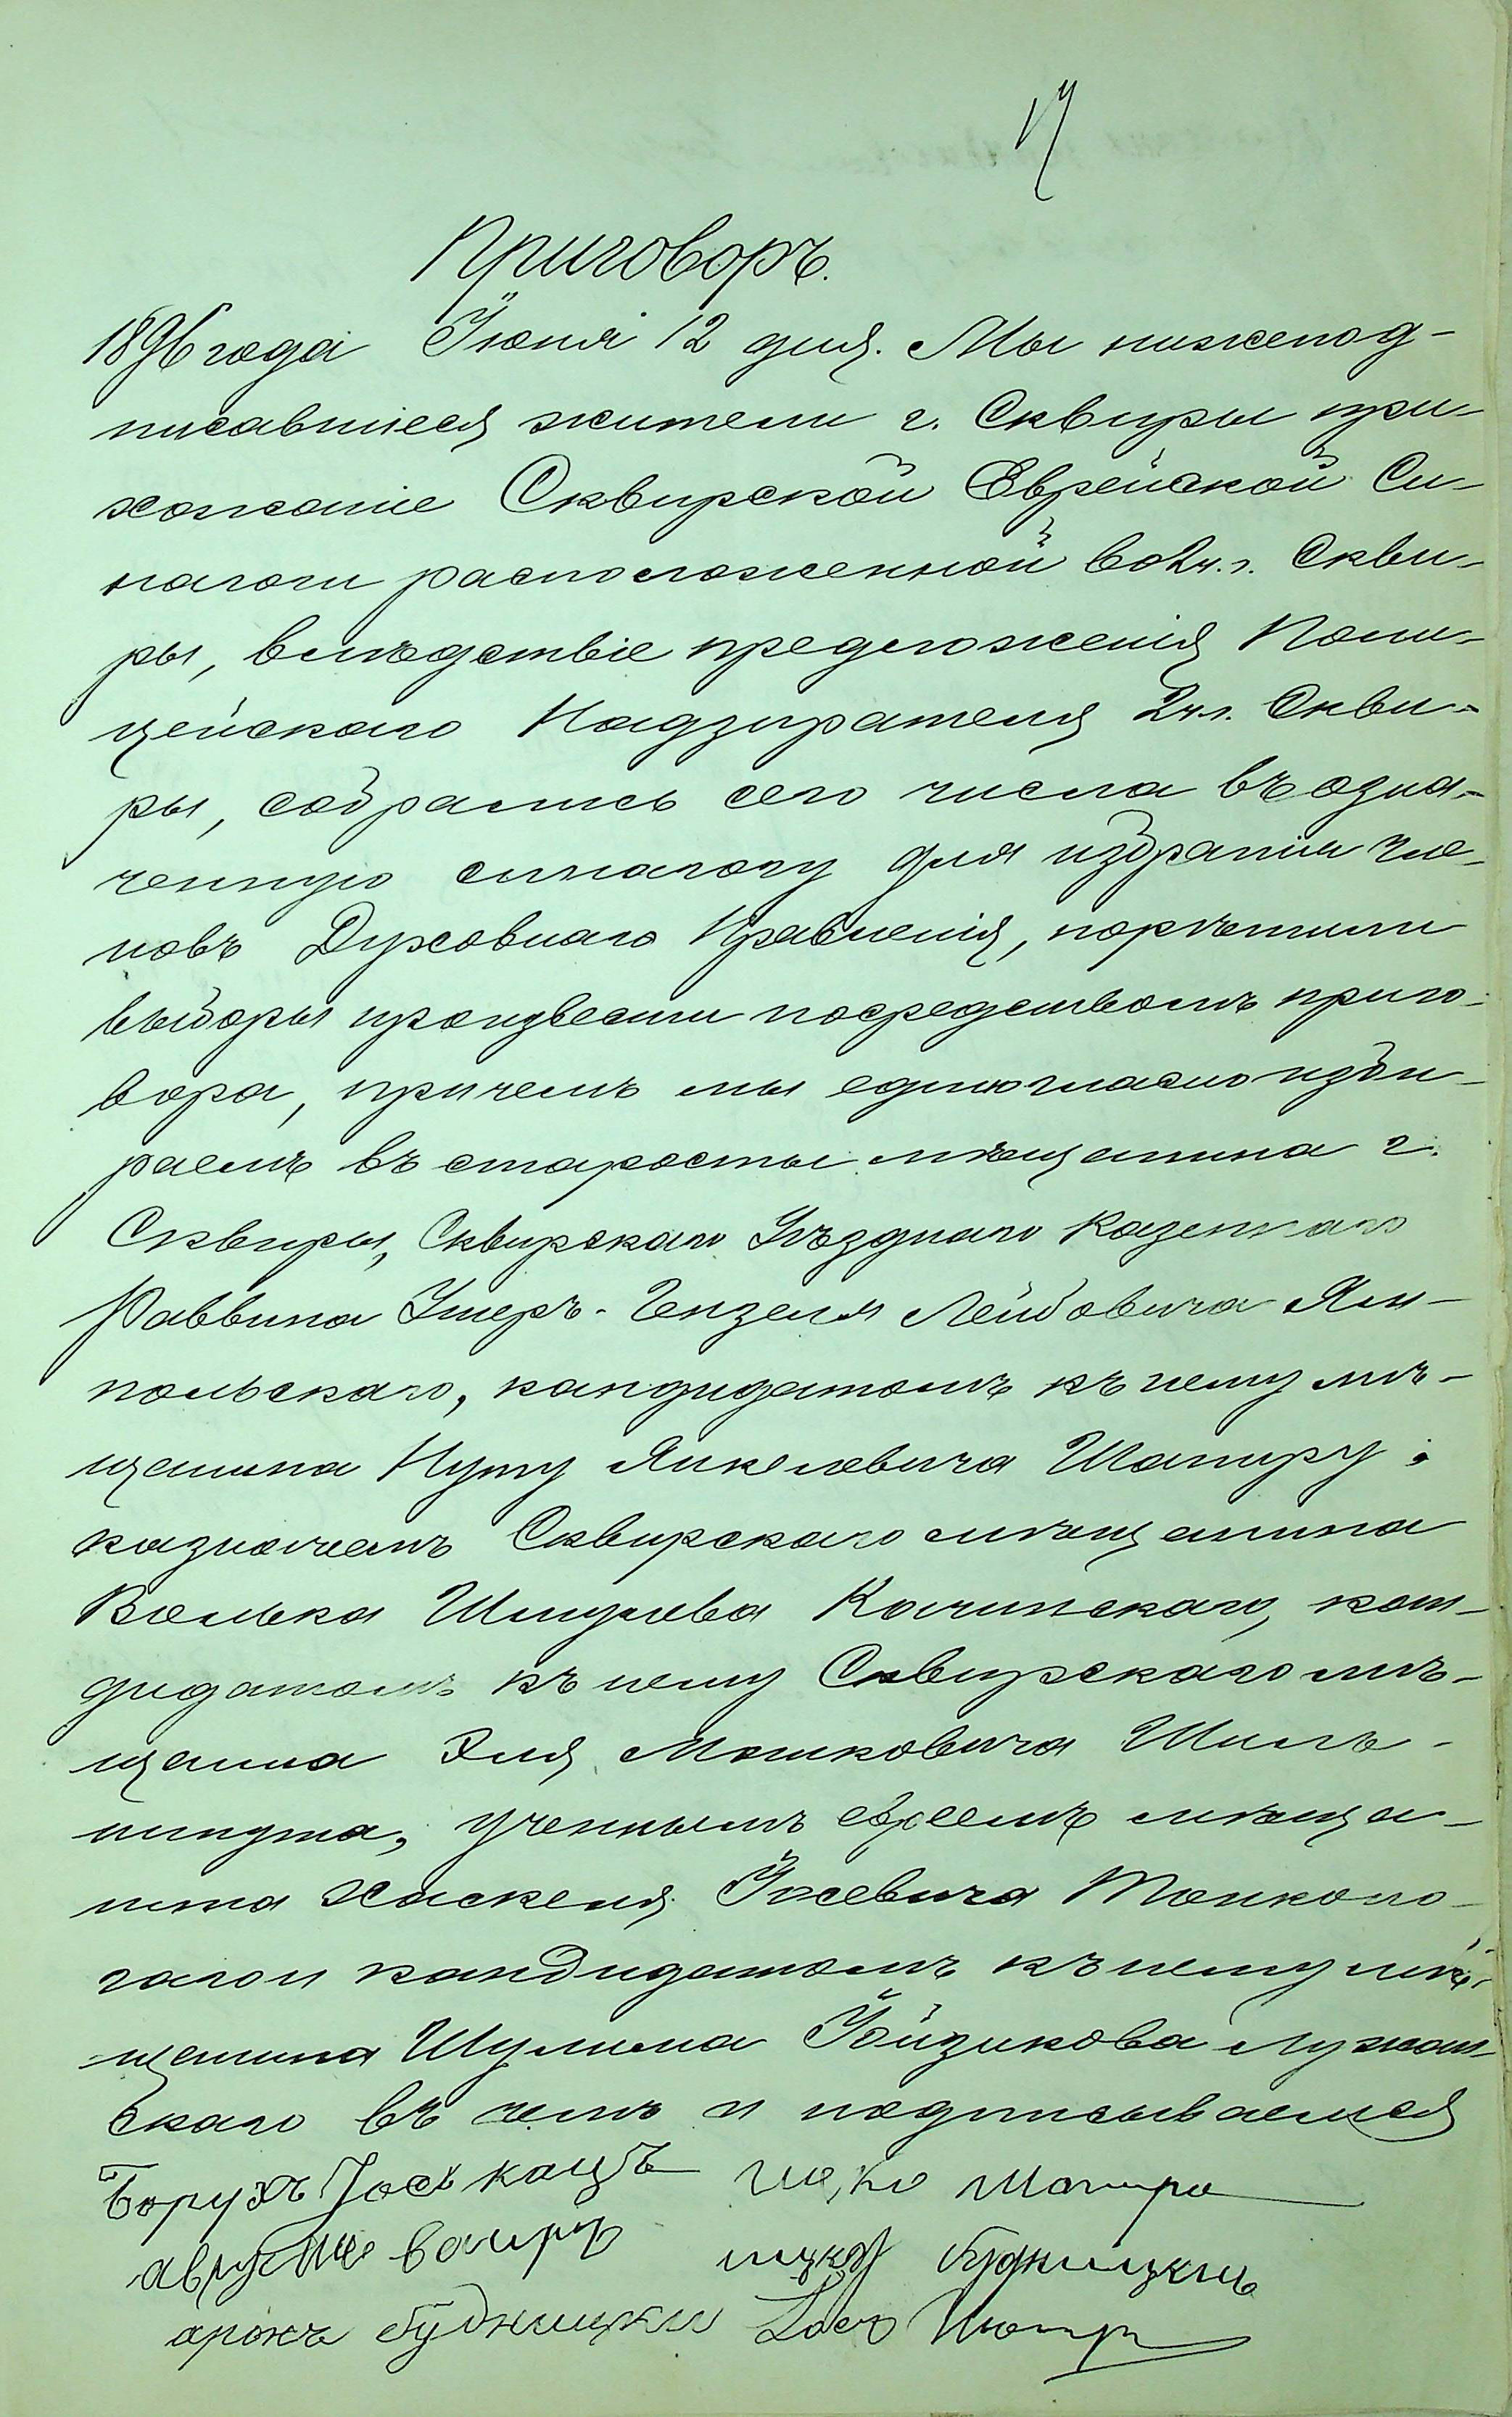 17
Приговоръ.
1896 года Іюня 12 дня. Мы нижепод-
писавшіеся жители г. Сквиры при-
хожаніе Сквирской Еврейской Си-
нагоги расположенной во 2 ч. г. Скви-
ры, вслѣдствіе предложенія Поли-
цейскаго Надзирателя 2 ч. г. Скви-
ры, собрались сего числа въ озна-
ченную синагогу для избранія чле-
новъ Духовнаго Правленія, порѣшили
выборы произвести посредствомъ приго-
вора, причемъ мы единогласно изби-
раемъ въ старосты мѣщанина г.
Сквиры, Сквирскаго Уѣзднаго Казеннаго
Раввина Ушеръ-Гензеля Лейбовича Ям-
польскаго, кандидатомъ къ нему мѣ-
щанина Нуту Янкелевича Шапиру;
казначемъ Сквирскаго мѣщанина
Волька Шмулева Качинскаго, кан-
дидатомъ къ нему Сквирскаго мѣ-
щанина Эля Мошковича
ученнымъ евреемъ мѣща-
нина Хаскеля Іосевича Тонконо-
гаго и кандидатомъ къ нему мѣ-
щанина Шулима Іойзикова Лужан-
скаго въ чемъ и подписываемся
Борухъ Іось Кацъ Шапиро
Будницкий
аронъ Будницкий